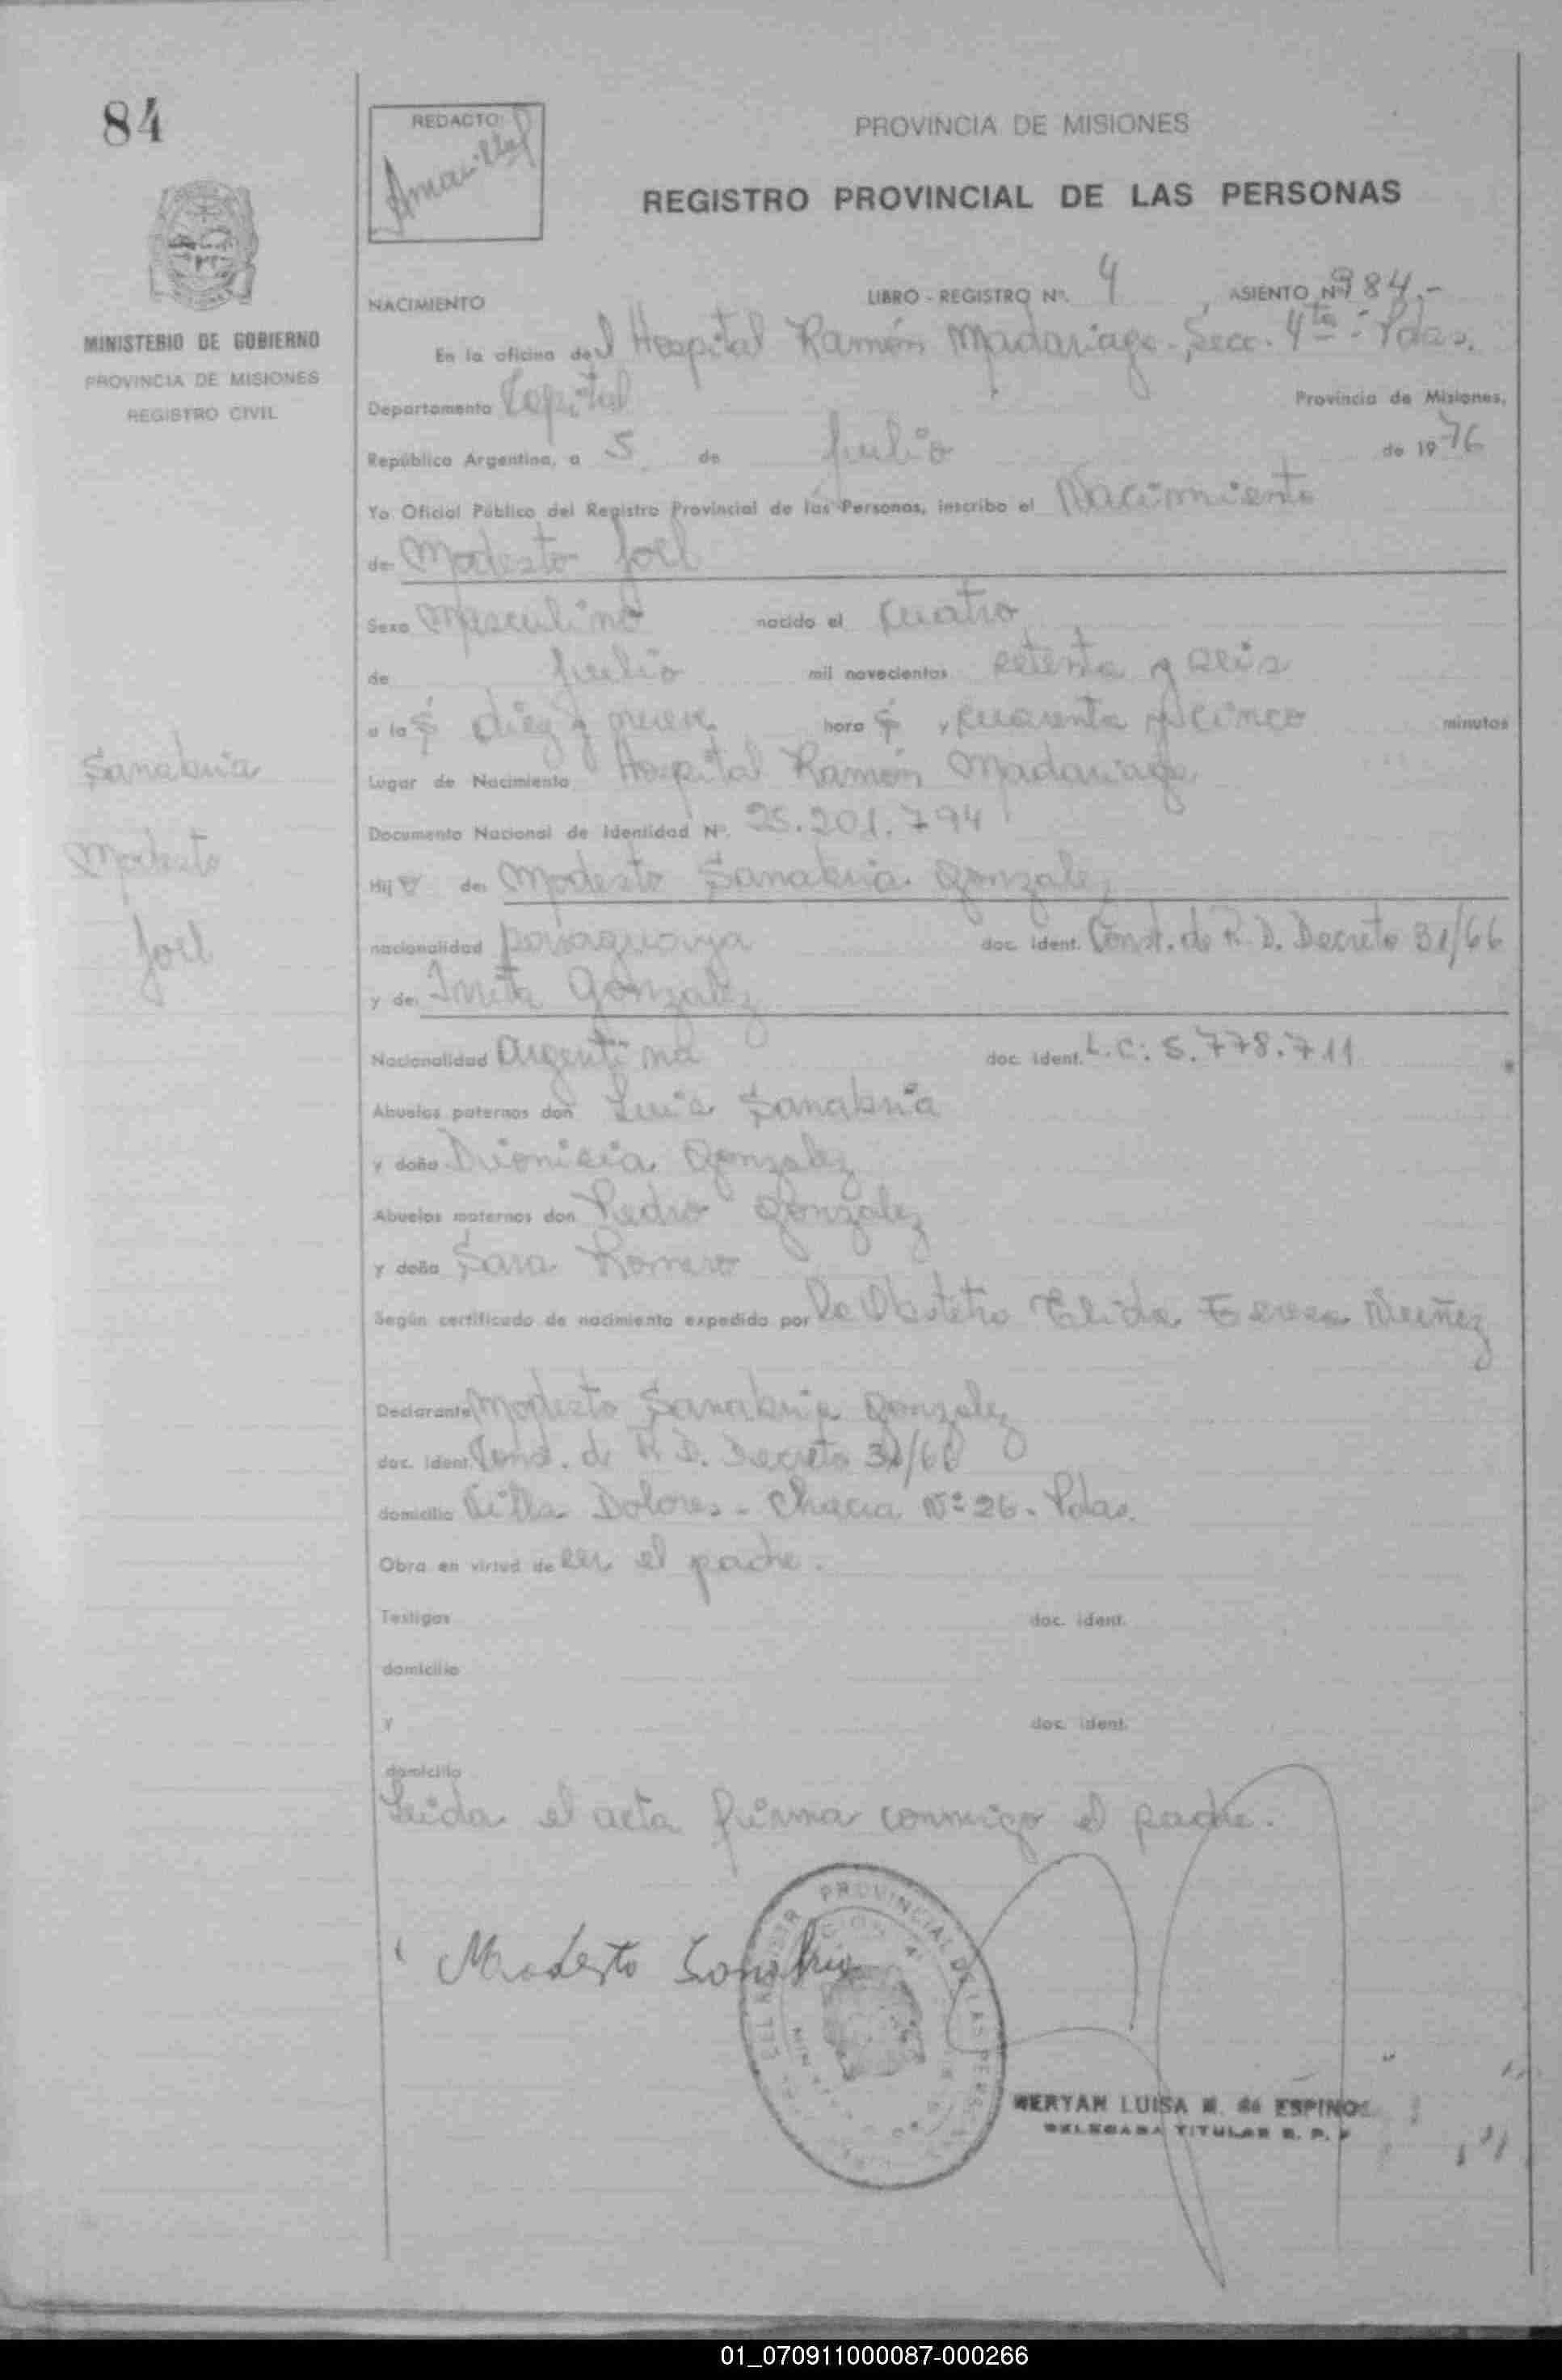 84
REDACTO:
PROVINCIA DE MISIONES
REGISTRO PROVINCIAL DE LAS PERSONAS
MINISTERIO DE GOBIERNO
PROVINCIA DE MISIONES
REGISTRO CIVIL
NACIMIENTO LIBRO - REGISTRO Nº. 4, ASIENTO Nº 984.-
En la oficina del Hospital Ramón Madariaga - Secc. 4ta - Pdas.
Departamento Capital Provincia de Misiones,
República Argentina, a 5 de Julio de 1976
Yo Oficial Público del Registro Provincial de las Personas, inscribo el Nacimiento
de Modesto Joel
Sexo Masculino nacido el cuatro
de Julio mil novecientos setenta y seis
a las diez y nueve horas, cuarenta y cinco minutos
Lugar de Nacimiento Hospital Ramón Madariaga
Documento Nacional de Identidad Nº. 25.201.794
Sanabria
Modesto
Joel
Hijo de Modesto Sanabria Gonzalez
nacionalidad paraguaya doc. ident. Const. de R. D. Decreto 31/66
y de Gonzalez
Nacionalidad Argentina doc. ident. L.C: 5.778.711
Abuelos paternos don Luis Sanabria
y doña Dionisia Gonzalez
Abuelos maternos don Pedro Gonzalez
y doña Sara Romero
Según certificado de nacimiento expedido por La Obstetra Elida Teresa Nuñez
Declarante Modesto Sanabria Gonzalez
doc. ident. Const. de R. D. Decreto 31/66
domicilio Villa Dolores - Chacra Nº 26 - Pdas.
Obra en virtud de ser el padre.
Testigos doc. ident.
domicilio
y doc. ident.
domicilio
Leida el acta firma conmigo el padre.
Modesto Sanabria
PROVINCIAL DE LAS PERSONAS
MERYAN LUISA M. de ESPINOS
DELEGADA TITULAR R. P.
01_070911000087-000266